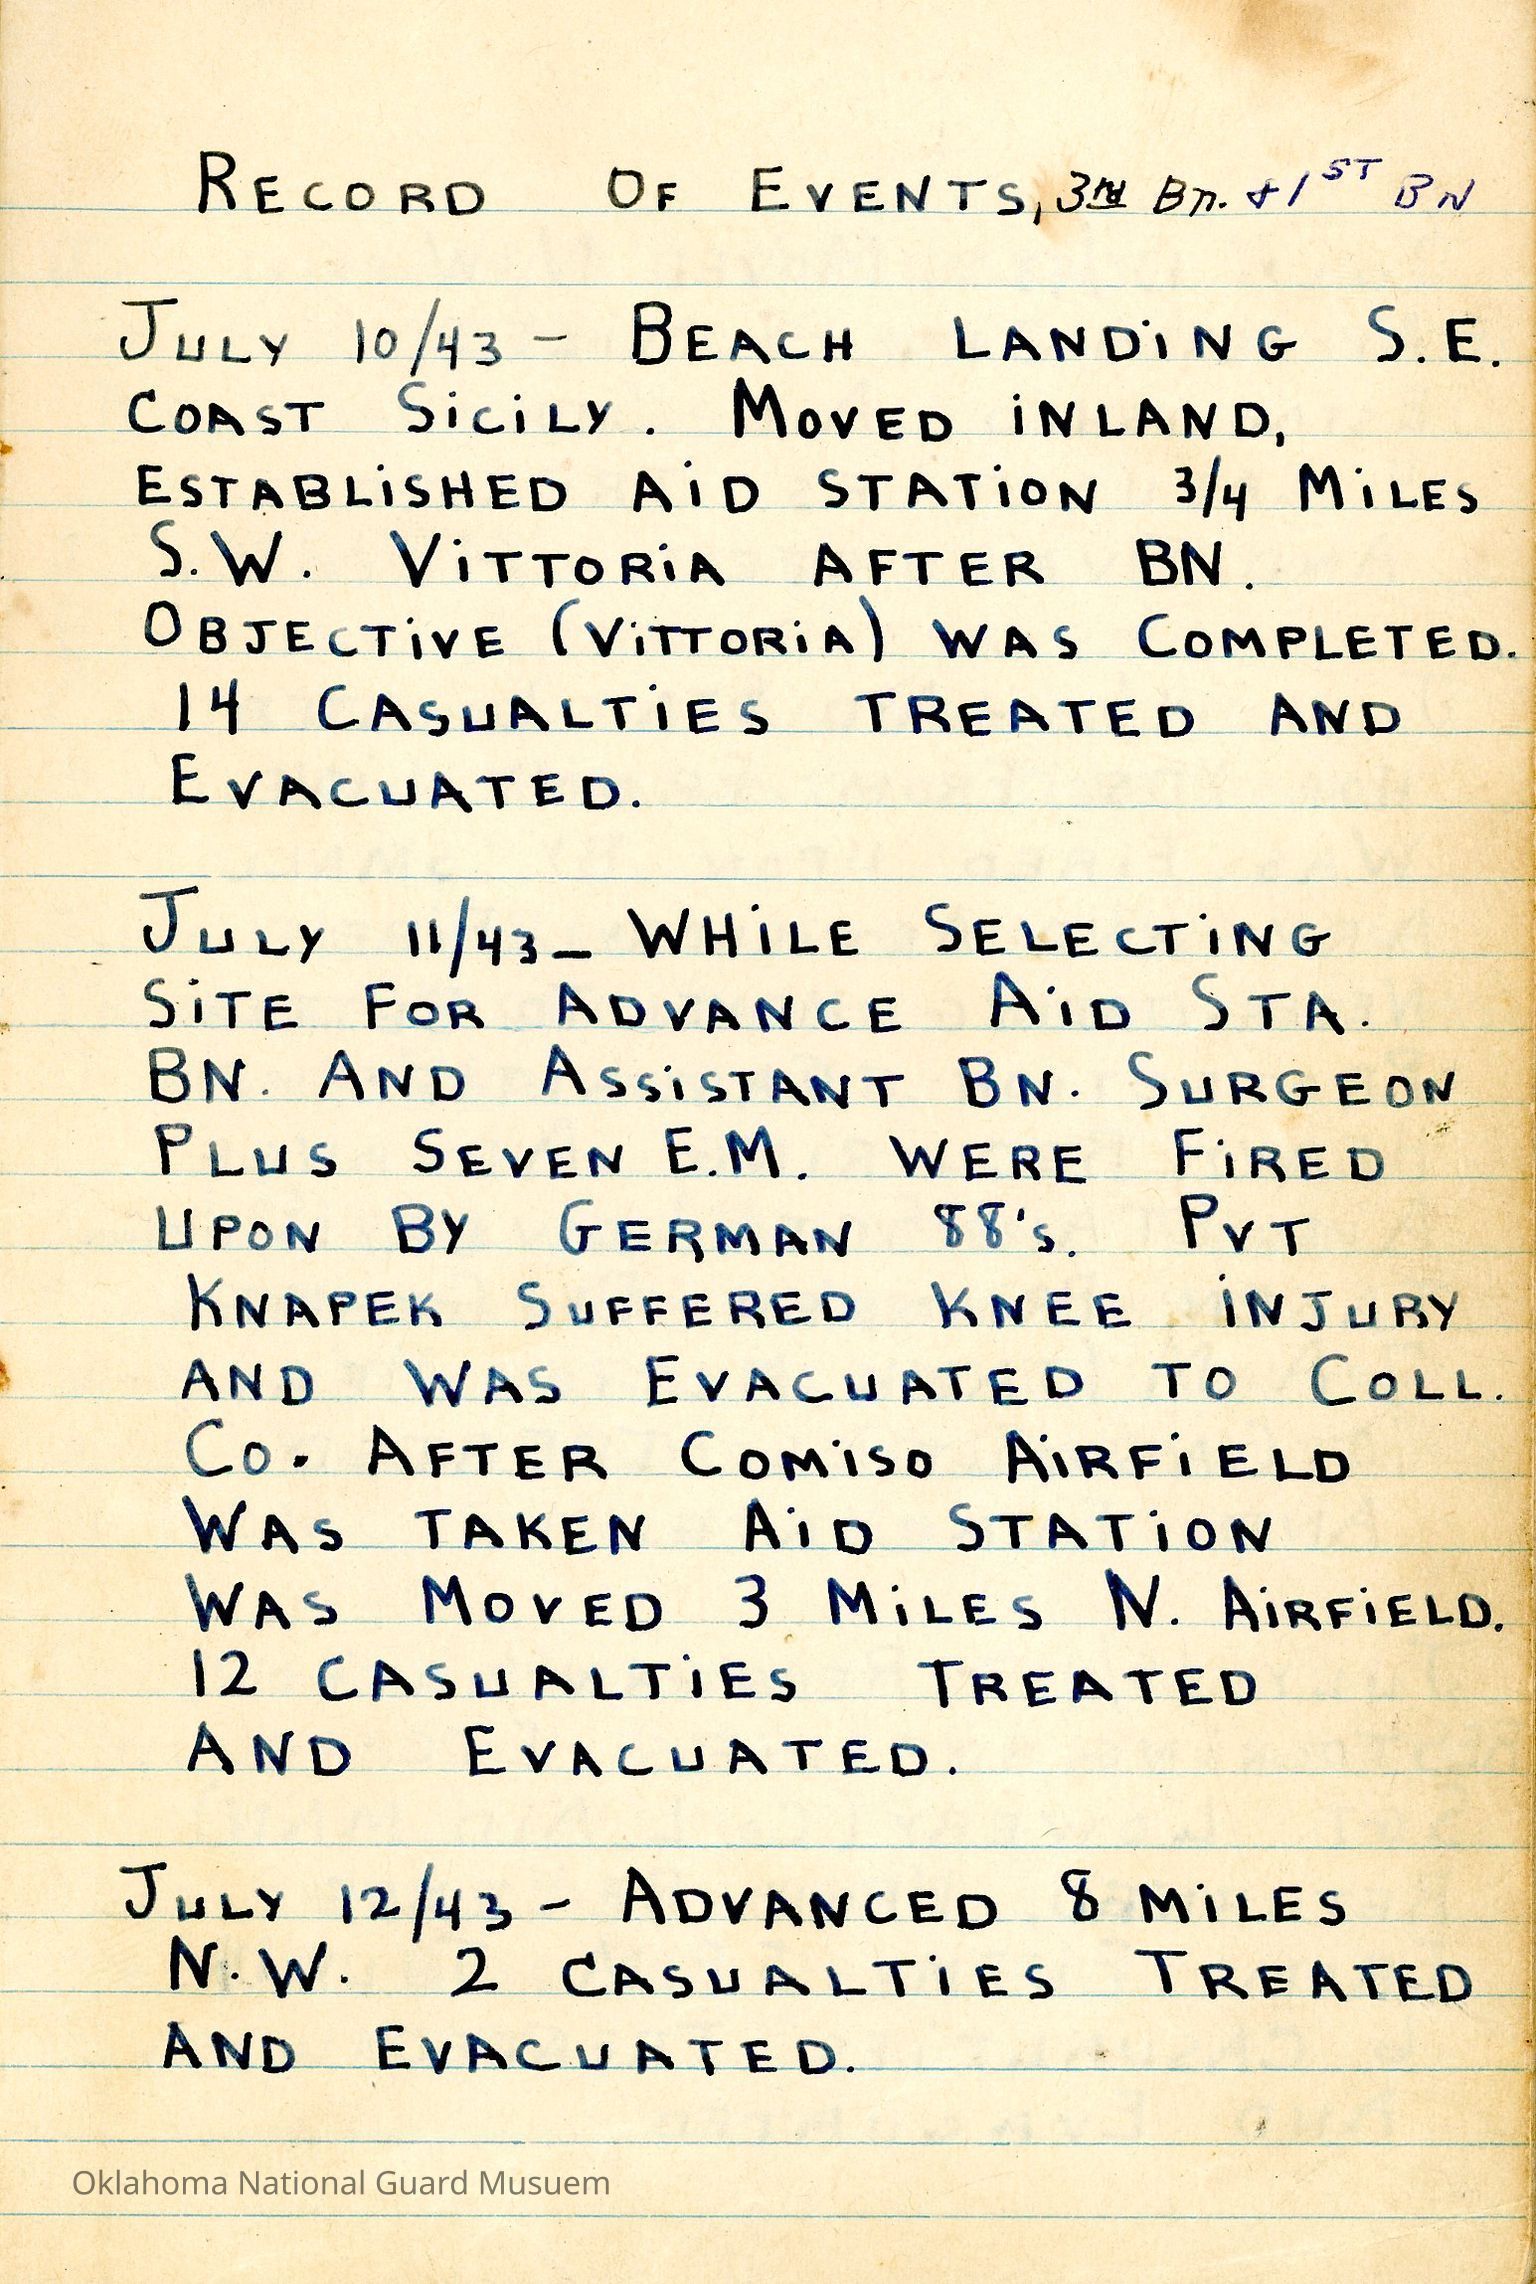 RECORD OF EVENTS, 3rd Bn. & 1ST BN
JULY 10/43 - BEACH LANDING S.E.
COAST SICILY. MOVED INLAND,
ESTABLISHED AID STATION 3/4 MILES
S.W. VITTORIA AFTER BN.
OBJECTIVE (VITTORIA) WAS COMPLETED.
14 CASUALTIES TREATED AND
EVACUATED.
JULY 11/43 - WHILE SELECTING
SITE FOR ADVANCE AID STA.
BN. AND ASSISTANT BN. SURGEON
PLUS SEVEN E.M. WERE FIRED
UPON BY GERMAN 88's. PVT
KNAPEK SUFFERED KNEE INJURY
AND WAS EVACUATED TO COLL.
CO. AFTER COMISO AIRFIELD
WAS TAKEN AID STATION
WAS MOVED 3 MILES N. AIRFIELD.
12 CASUALTIES TREATED
AND EVACUATED.
JULY 12/43 - ADVANCED 8 MILES
N.W. 2 CASUALTIES TREATED
AND EVACUATED.
Oklahoma National Guard Musuem